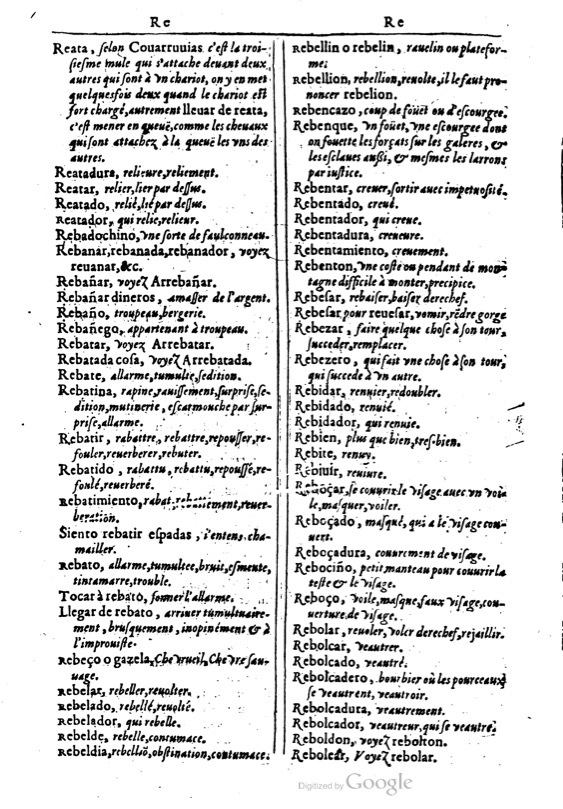 Re
Reata, ſelon Couarruuias c'eſt la troi-
ſieſme mule qui s'attache deuant deux
autres qui ſont à vn chariot, on y en met
quelquesfois deux quand le chariot eſt
fort chargé, autrement lleuar de reata,
c'eſt mener en queuë, comme les cheuaux
qui ſont attachez à la queuë les vns des
autres.
Reatadura, relieure, reliement.
Reatar, relier, lier par deſſus.
Reatado, relié, lié par deſſus.
Reatador, qui relie, relieur.
Rebadochino, vne ſorte de faulconneau.
Rebanar, rebanada, rebanador, voyez
reuanar, &c.
Rebañar, voyez Arrebañar.
Rebañar dineros, amaſſer de l'argent.
Rebaño, troupeau, bergerie.
Rebañego, appartenant à troupeau.
Rebatar, voyez Arrebatar.
Rebatada coſa, voyez Arrebatada.
Rebate, allarme, tumulte, ſedition.
Rebatina, rapine, rauiſſement, ſurpriſe, ſe-
dition, mutinerie, eſcarmouche par ſur-
priſe, allarme.
Rebatir, rabattre, rebattre, repouſſer, re-
fouler, reuerberer, rebuter.
Rebatido, rabattu, rebattu, repouſſé, re-
foulé, reuerberé.
Rebatimiento, rabat, rebattement, reuer-
beration.
Siento rebatir eſpadas, i'entens cha-
mailler.
Rebato, allarme, tumultee, bruit, eſmeute,
tintamarre, trouble.
Tocar à rebato, ſonner l'allarme.
Llegar de rebato, arriuer tumultuaire-
ment, bruſquement, inopinément & à
l'improuiſte.
Rebeço o gazela, Cheureuil, Cheure ſau-
uage.
Rebelar, rebeller, reuolter.
Rebelado, rebellé, reuolté.
Rebelador, qui rebelle.
Rebelde, rebelle, contumace.
Rebeldia, rebelliō, obſtination, contumace.
Re
Rebellin o rebelin, rauelin ou platefor-
me.
Rebellion, rebellion, reuolte, il le faut pro-
noncer rebelion.
Rebencazo, coup de foüet ou d'eſcourgee.
Rebenque, vn foüet, vne eſcourgee dont
on fouette les forçats ſur les galeres, &
les eſclaues außi, & meſmes les larrons
par iuſtice.
Rebentar, creuer, ſortir auec impetuoſité.
Rebentado, creué.
Rebentador, qui creue.
Rebentadura, creueure.
Rebentamiento, creuement.
Rebenton, vne coſte ou pendant de mon-
tagne difficile à monter, precipice.
Rebeſar, rebaiſer, baiſer derechef.
Rebeſar pour reueſar, vomir, rēdre gorge
Rebezar, faire quelque choſe à ſon tour,
ſucceder, remplacer.
Rebezero, qui fait vne choſe à ſon tour,
qui ſuccede à vn autre.
Rebidar, renuier, redoubler.
Rebidado, renuié.
Rebidador, qui renuie.
Rebien, plus que bien, tres-bien.
Rebite, renuy.
Rebiuir, reuiure.
Reboçar, ſe couurir le viſage auec vn voi-
le, maſquer, voiler.
Reboçado, maſqué, qui a le viſage cou-
uert.
Reboçadura, couurement de viſage.
Rebociño, petit manteau pour couurir la
teſte & le viſage.
Reboço, voile, maſque, faux viſage, cou-
uerture de viſage.
Rebolar, reuoler, voler derechef, rejaillir.
Rebolcar, veautrer.
Rebolcado, veautré.
Rebolcadero, bourbier où les pourceaux
ſe veautrent, veautroir.
Rebolcadura, veautrement.
Rebolcador, veautreur, qui ſe veautre.
Reboldon, voyez rebolton.
Rebolear, Voyez rebolar.
Digitized by Google